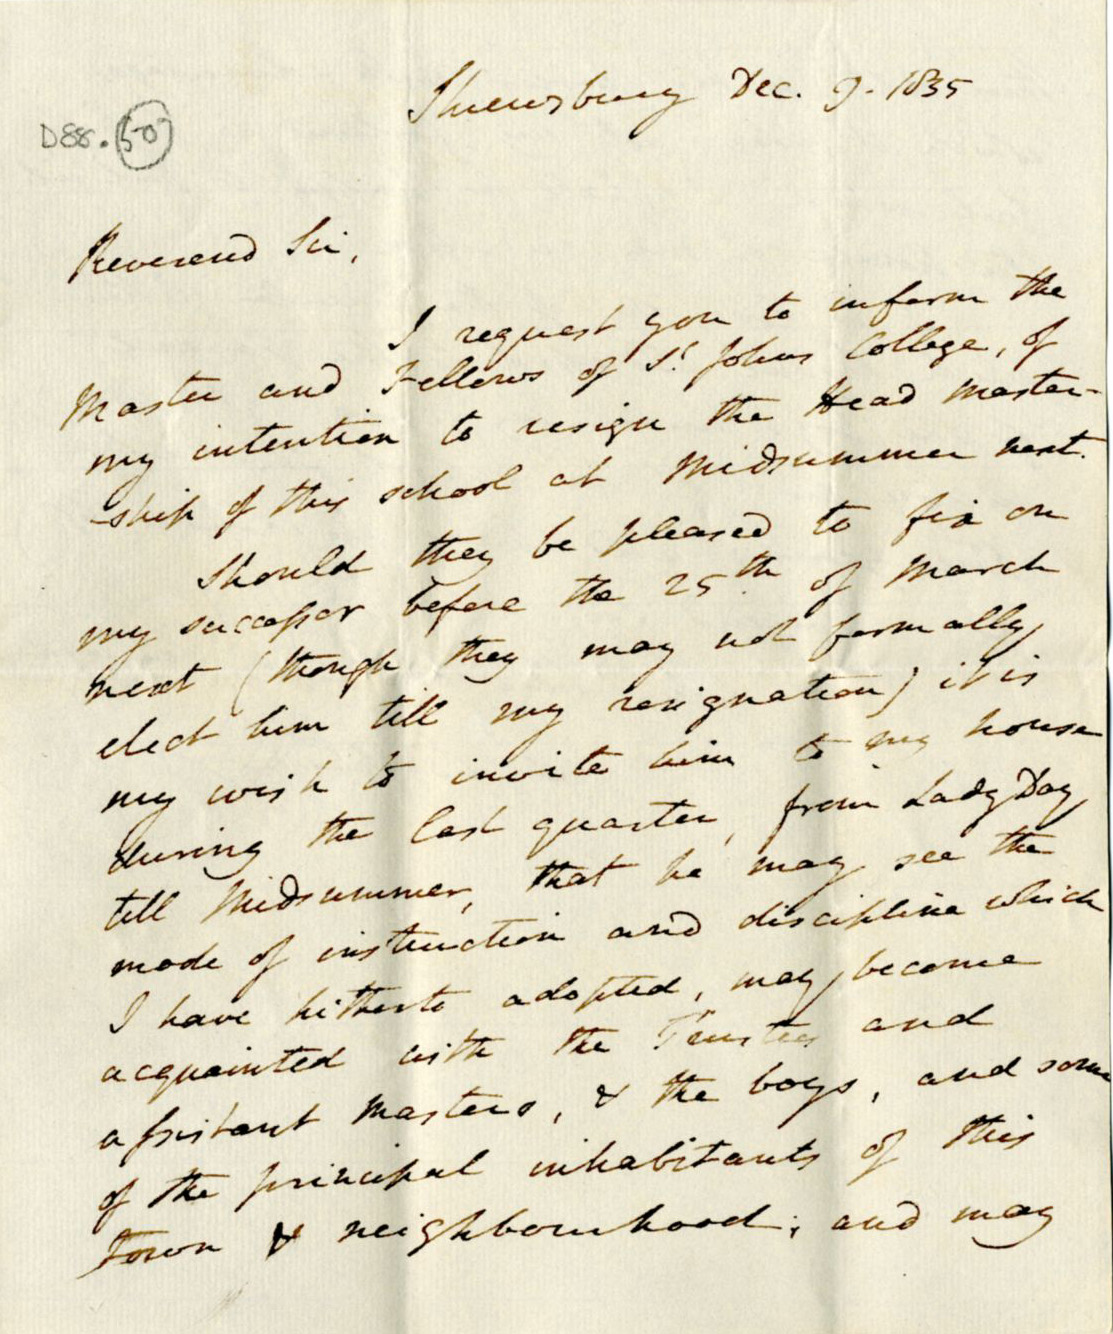 Shrewsbury Dec. 9. 1835
D88. 50
Reverend Sir,
I request you to inform the
Master and Fellows of St. Johns College, of
my intention to resign the Head Master-
-ship of this school at Midsummer next.
Should they be pleased to fix on
my successor before the 25th of March
next (though they may not formally
elect him till my resignation) it is
my wish to invite him to my house
during the last quarter, from Lady Day
till Midsummer, that he may see the
mode of instruction and discipline which
I have hitherto adopted, may become
acquainted with the Trustees and
assistant Masters, & the boys, and some
of the principal inhabitants of this
town & neighbourhood; and may